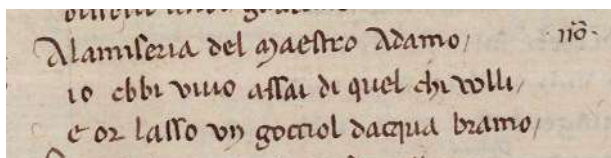 Alamiseria del maestro Adamo/ nõ.
io ebbi viuo assai di quel chi volli/
e or lasso vn gocciol dacqua bramo/